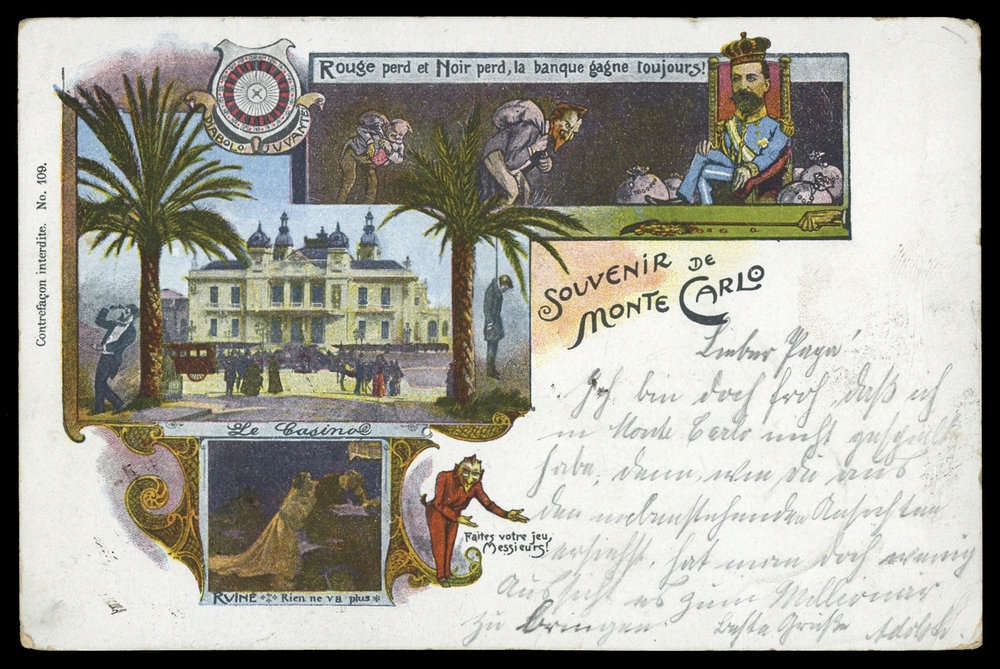 Rouge perd et Noir perd, la banque gagne toujours!
DIABOLO JUVANTE
Contrefaçon interdite. No. 109.
SOUVENIR DE
MONTE CARLO
Le Casino
RUINE Rien ne va plus
Faites votre jeu,
Messieurs!
Lieber Papa!
Ich bin doch froh, daß ich
in Monte Carlo nicht gespielt
habe, denn, wie Du aus
den nebenstehenden Ansichten
ersiehst, hat man doch wenig
Aussicht es zum Millionär
zu bringen. Beste Grüße Adolf.